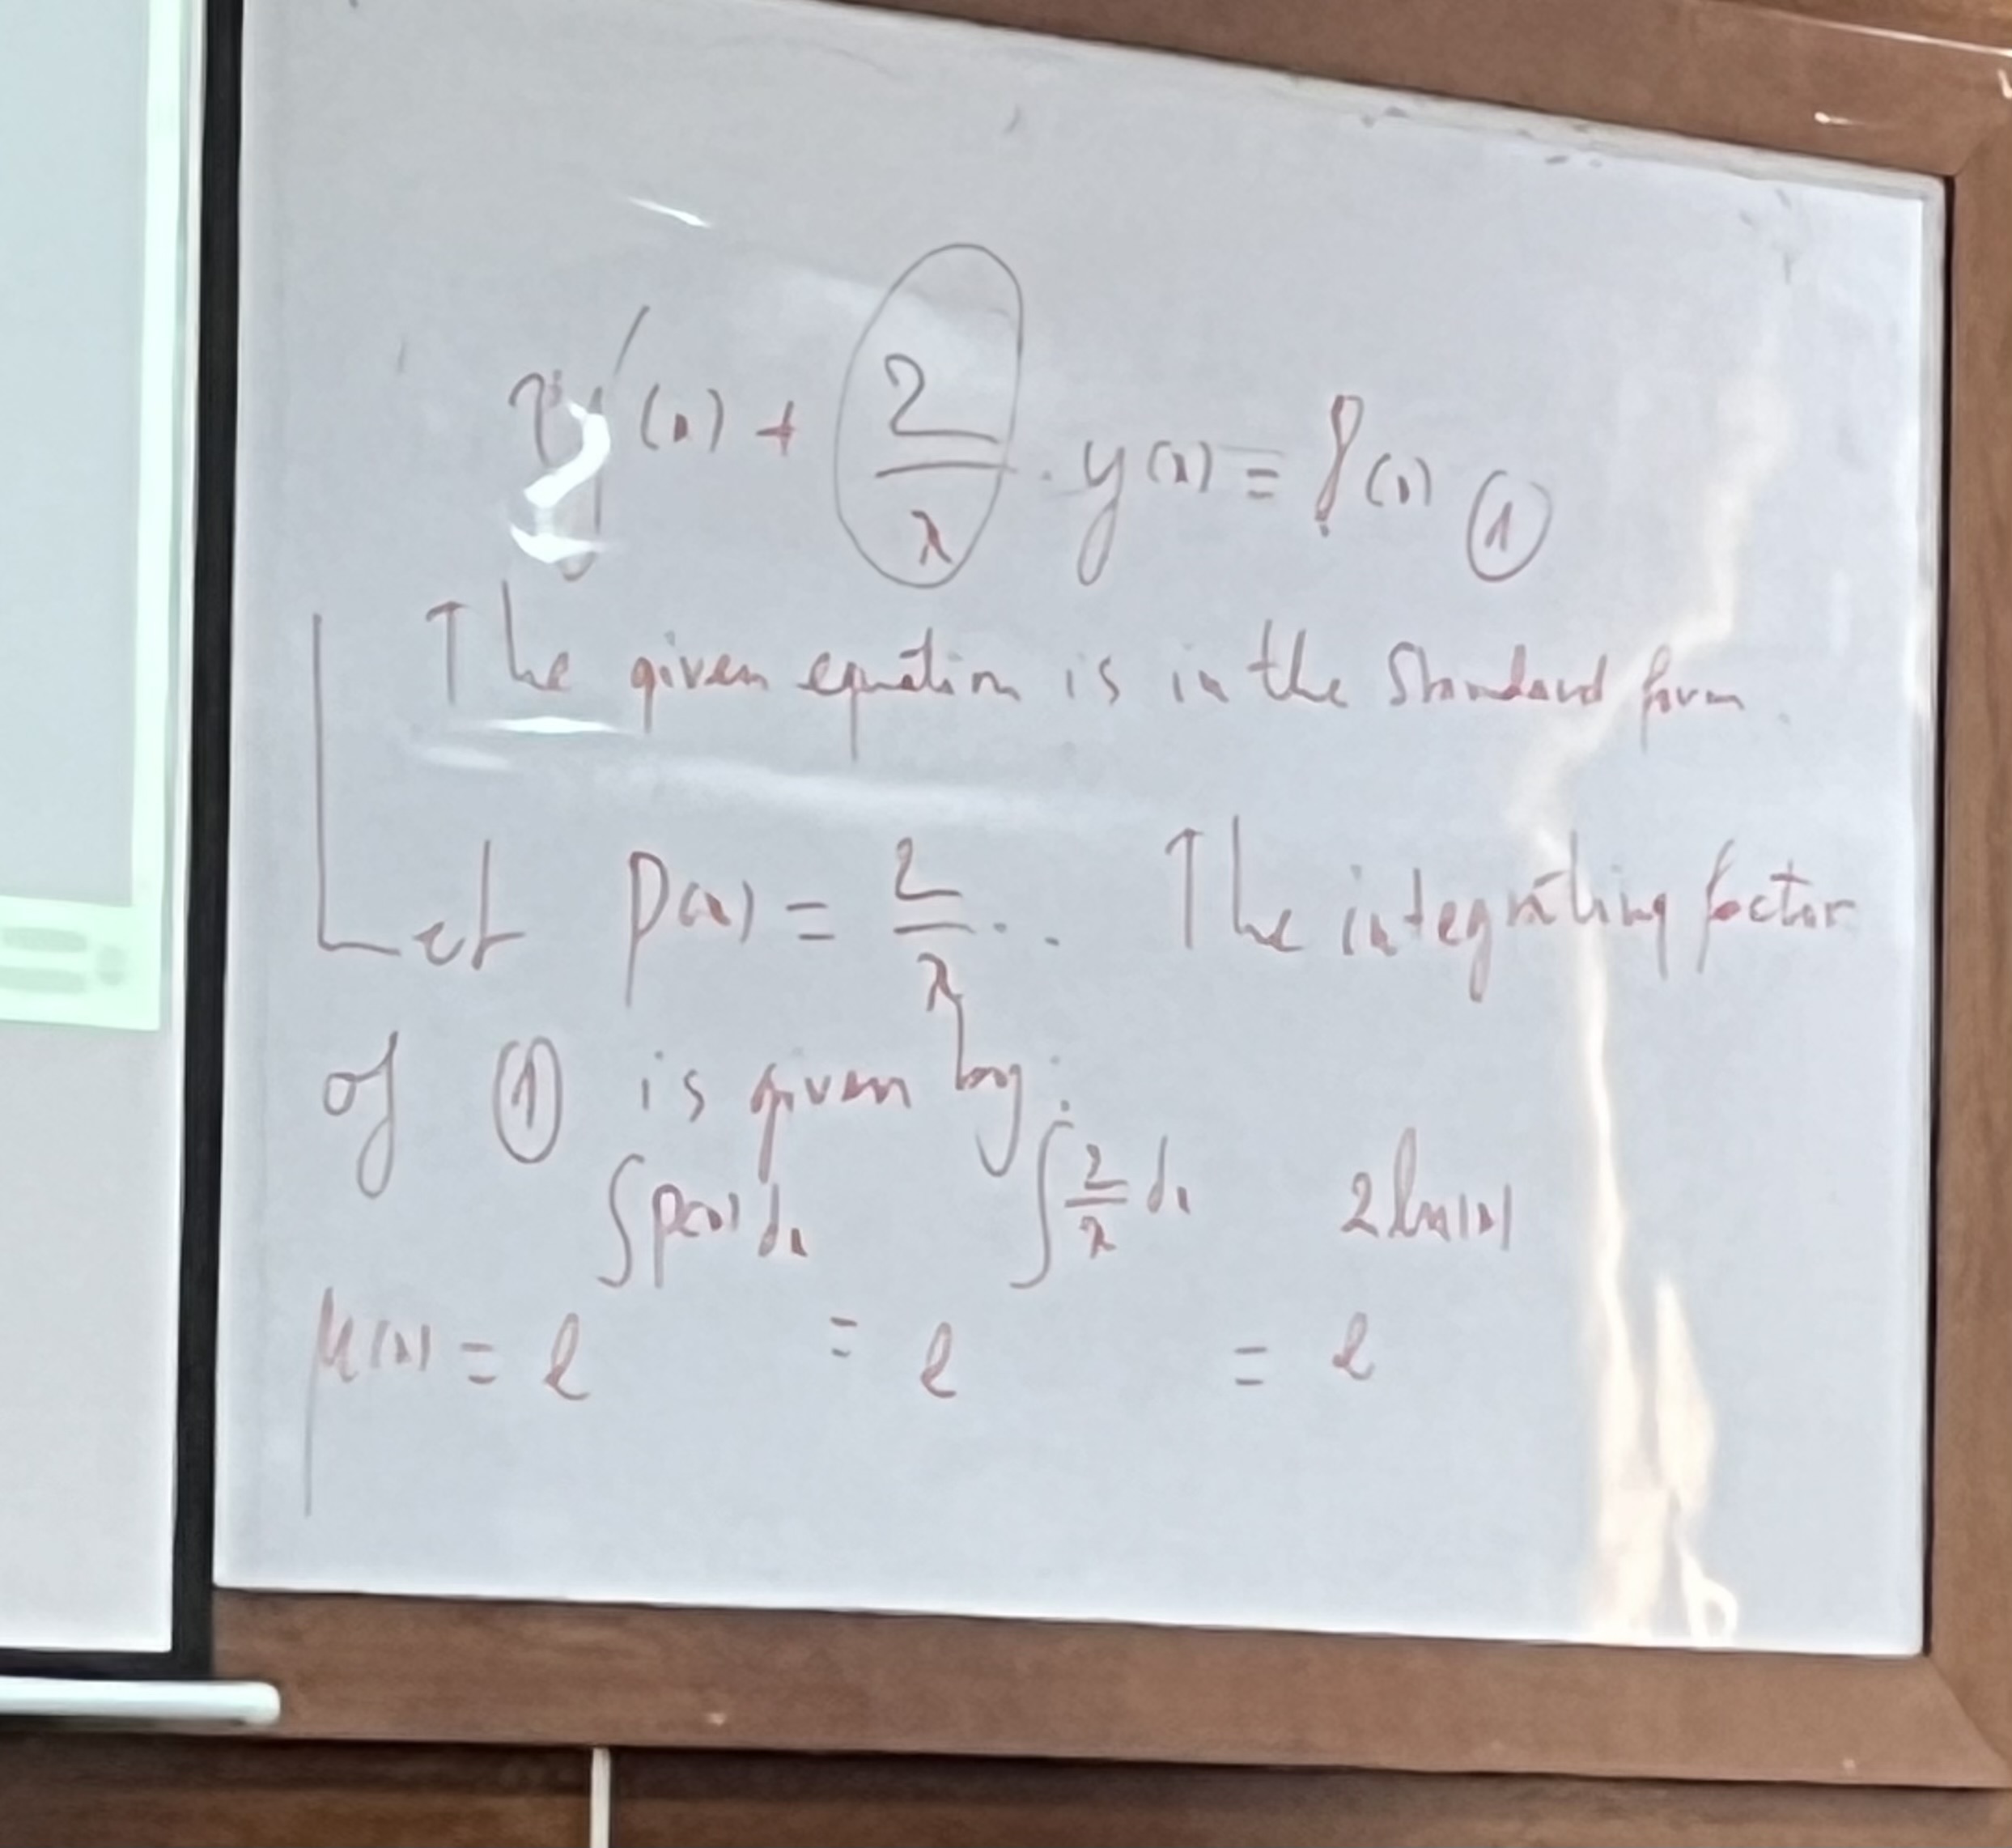 y'(x) + 2/x . y(x) = f(x) ①
The given equation is in the Standard form.
Let P(x) = 2/x. . The integrating factor
of ① is given by:
μ(x) = e^∫P(x)dx = e^∫2/x dx = e^2ln|x|